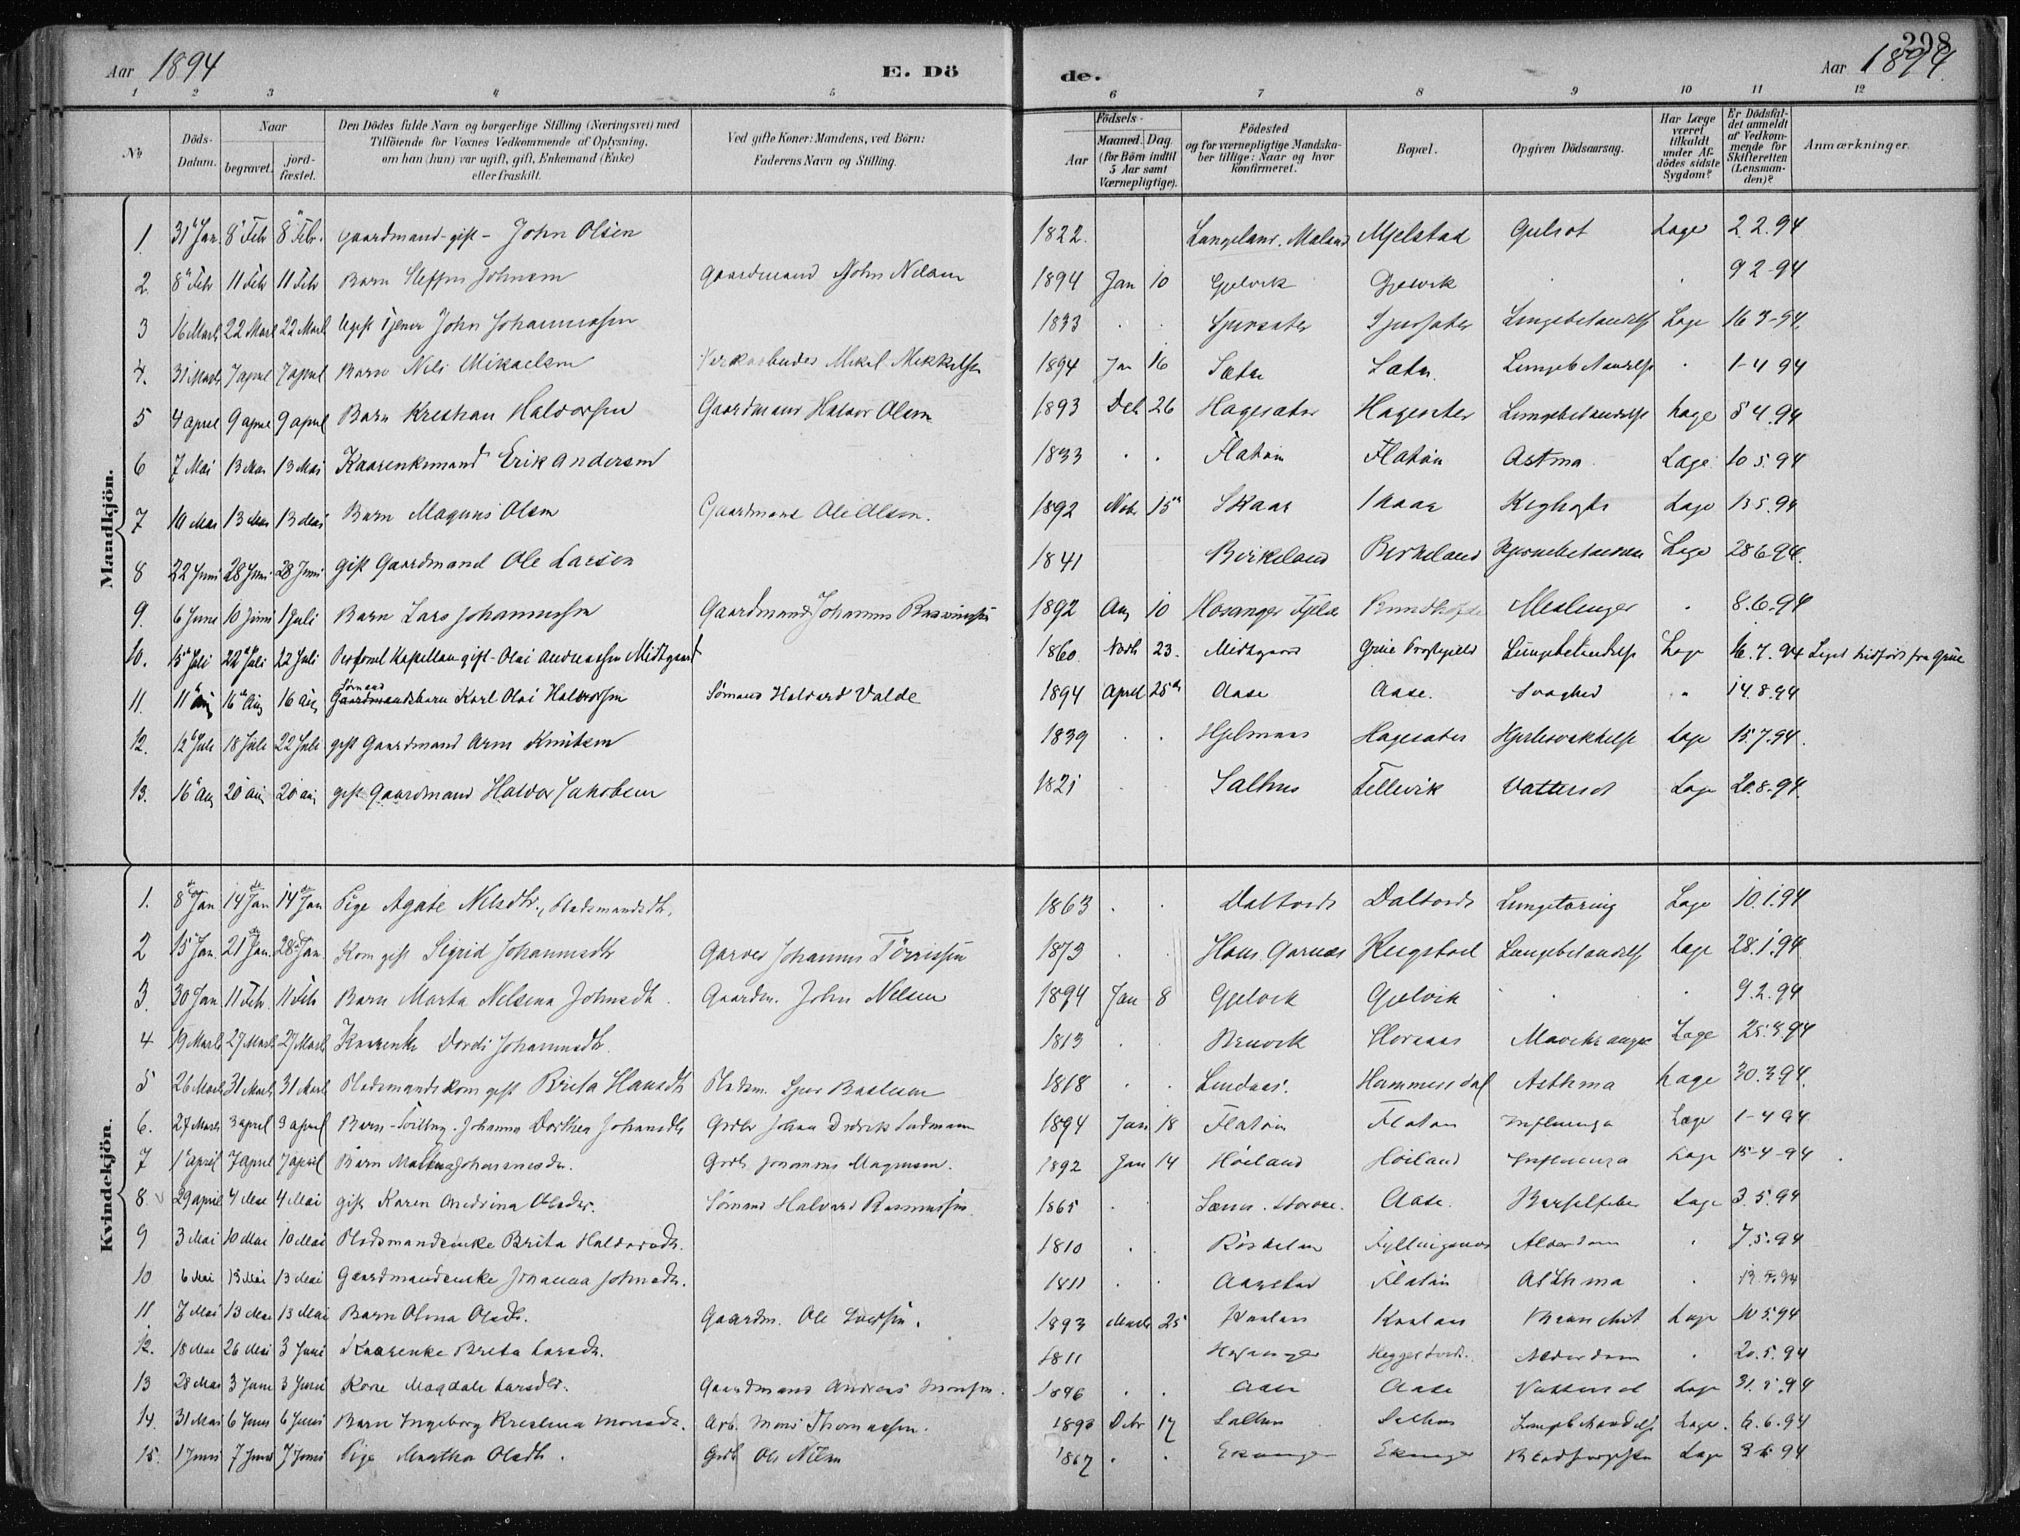 298
Aar 1894 E. Dö de. Aar 1894.
1 2 3 4 5 6 7 8 9 10 11 12
No. Döds-Datum. Naar begravet. jord-fæstet. Den Dödes fulde Navn og borgerlige Stilling (Næringsvei) med Tilföiende for Voxnes Vedkommende af Oplysning, om han (hun) var ugift, gift, Enkemand (Enke) eller fraskilt. Ved gifte Koner: Mandens, ved Börn: Faderens Navn og Stilling. Födsels- Aar Maaned. Dag. (for Börn indtil 5 Aar samt Værnepligtige). Födested og for værnepligtige Mandska-ber tillige: Naar og hvor konfirmeret. Bopæl. Opgiven Dödsaarsag. Har Læge været tilkaldt under Af-dödes sidste Sygdom? Er Dödsfal-det anmeldt af Vedkom-mende for Skifteretten (Lensman-den)? Anmærkninger.
Mandkjön.
1. 31 Jan. 8 Feb 8 Febr. Gaardmand-gift- John Olsen 1822. Mjelstad Lage 2.2.94
2. 8 Feb 11 Feb 11 Feb Barn Steffen Johnsen Gaardmand John Nilsen 1894 Jan 10 Gjelvik Gjelvik 9 2-94
3 16 Marts 22 Marts 22 Marts Ugift Tjener John Johannessen 1833 . . Lungebetændelse Lage 16 3-94.
4. 31 Marts 7 april 7 april Barn Nils Mikaelsen Mikal Mikkelsen 1894 Jan 16 Sætre Sætre. Lungebetændelse . 1-4 94
5 4 april 9 april 9 april Barn Kristian Halvorsen Gaardmand Halvor Olsen 1893 Deb 26 Hagesæter Hagesæter Lungebetændelse Lage 5 4.94
6 7 Mai 13 Mai 13 Mai Kaarenkemand Erik Andersen 1833 . . Flatøin Flatøin Astma. Læge 10 5.94
7 10 Mai 13 Mai 13 Mai Barn Magnus Olsen Gaardmand Ole Olsen. 1892 Nobr 15 Skaar Skaar Kighoste Lage 13 5.94
8 22 Juni 28 Juni 28 Juni gift Gaardmand Ole Larsen 1841 Birkeland Birkeland Lage 28 6 94.
9. 6 Juni 10 Juni 1 Juli Barn Lars Johannessen Gaardmand Johannes 1892 Aug 10 Hosanger Meslinger . 8.6.94
10. 15 Juli 22 Juli 22 Juli Personel Kapellan gift- Olai Andreassen Midtgaard 1860 23. Midtgaard Grue Prestegjeld Lungebetændelse Lage 16.7.94 Liget hidført fra Grue
11. 11 Aug 16 Aug 16 Aug Sømand Gaardmandsbarn Karl Olai Halvorssen Sømand Halvard Valde 1894 April 25 Aase Aase. Svaghed . 14.8.94
12. 12 Juli 18 Juli 22 Juli gift Gaardmand Arne Knutsen 1839 . . Hjelmaas Hagesæter Lage 15.7.94.
13. 16 Aug 20 Aug 20 Aug gift Gaardmand Halvor Jakobsen 1821 . . Salhus Tellevik Vattersot Lage 20.8.94.
Kvindekjön.
1. 8 Jan 14 Jan 14 Jan Pige Agate Nilsdtr., Pladsmandsdtr. 1863 . . Lungetæring Lage 10.1.94
2 15 Jan. 21 Jan. 28 Jan. Kone gift Sigrid Johannesdtr Garver Johannes Tørrissen 1873 . . Lungebetændelse Lage 28.1.94
3. 30 Jan 11 Feb. 11 Feb Barn Marta Nelsina Johnsdtr. Gaardm. John Nelsen 1894 Jan 8 Gjelvik Gjelvik . . 9.2.94
4 19 Marts 27 Marts 27 Marts Kaarenke Dordi Johannesdtr. 1813 . Bruvik Lage 25.3.94
5 26 Marts 31 Marts 31 Marts Pladsmandskone gift Brita Hansdtr Pladsm. 1818 . . Lindaas. Hammersdal Asthma Lage 30.3.94.
6. 27 Marts 3 april 3 april Barn-Tvilling. Johanne Dorthea Johansdtr Johan Didrik 1894 Jan 18 Flatøin Flatøin Influenza Læge 1-4 94
7 1 april 7 april 7 april Barn Johannesdtr. Grdb. Johannes Magnusen. 1892 Jan 14 Høiland Høiland Influenza Lage 15-4-94
8. 29 april 4 Mai 4 Mai gift Karen Andrina Olsdtr. Sømand Halvard Rasmussen 1865 . Aase. Barselfeber Lage 3.5.94
9 3 Mai 10 Mai 10 Mai Pladsmandsenke Brita Haldorsdtr. 1810 . . Fyllingsnes Alderdom . 7.5.94
10 6 Mai 13 Mai 13 Mai Gaardmandsenke Johanna Johnsdtr. 1811 . . Flatøin Asthma .
11. 7 Mai 13 Mai 13 Mai Barn Olina Olsdtr. Gaardm. Ole 1893 Marts 25 Bronchit Lage 10 5.94
12. 18 Mai 26 Mai 3 Juni Kaarenke Brita Larsdtr. 1811 Hosanger Alderdom . 20.5.94
13 28 Mai 3 Juni 3 Juni Kone Magdale Larsdtr. Gaardmand Andreas Monsen. . . Aase Aase Vattersot Lage 31.5.94
14. 31 Mai 6 Juni 6 Juni Barn Ingeborg Kristina Monsdtr. Arb. Mons Thomassen. 1893 Debr 17 Salhus Salhus Lungebetændelse Lage. 6.6.94
15. 1 Juni 7 Juni 7 Juni Pige Martha Olsdtr. Grdb Ole Nilsen 1867 . . Eknanger Eknanger Lage 3 6 94